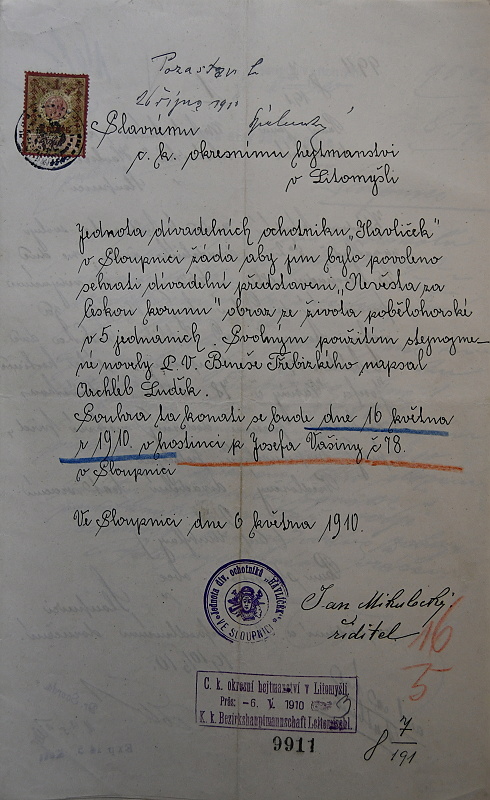 26 října 1911
Slavnému
c. k. okresnímu hejtmanství
v Litomyšli
Jednota divadelních ochotníku „Havlíček"
v Sloupnici žádá aby jim bylo povoleno
sehrati divadelní představení „Nevěsta za
Českou korunu" obraz ze života pobělohorské
v 5 jednáních. Svolným použitím stejnojme-
né novely P. V. Beneše Třebízkého napsal
Archleb Luděk.
Souhra ta konati se bude dne 16 května
r 1910. v hostinci p. Josefa Vašiny č 78.
v Sloupnici
Ve Sloupnici dne 6 května 1910.
Jednota div. ochotníků „HAVLÍČEK"
VE SLOUPNICI
Jan Mikulecký
ředitel
16
5
C. k. okresní hejtmanství v Litomyšli,
Präs: -6. V. 1910
K. k. Bezirkshauptmannschaft Leitomischl.
9911
8 7
191